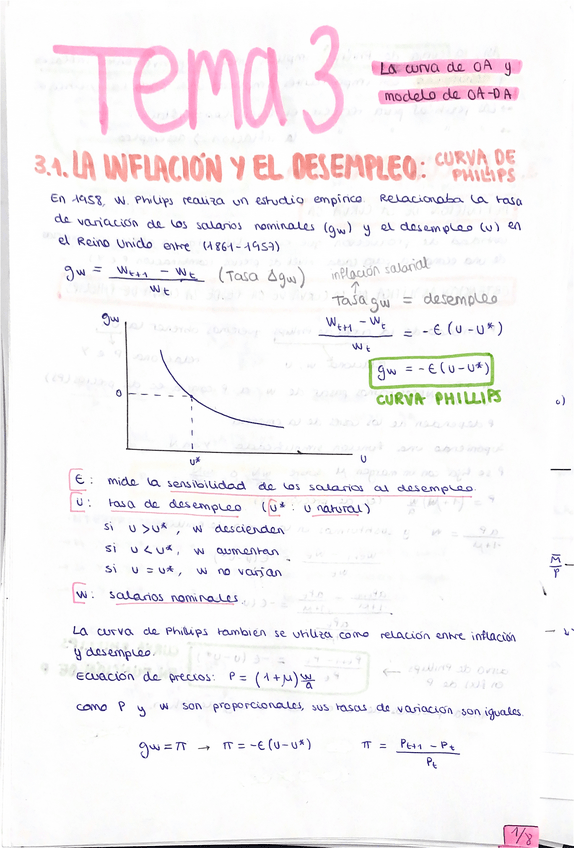 Tema 3
La curva de OA y
modelo de OA-DA
3.1. LA INFLACIÓN Y EL DESEMPLEO: CURVA DE
PHILLIPS
En 1958, W. Philips realiza un estudio empírico. Relacionaba la tasa
de variación de los salarios nominales (gw) y el desempleo (u) en
el Reino Unido entre (1861-1957)
gw = (W_{t+1} - W_t) / W_t (Tasa Δgw)
inflación salarial
↑
Tasa gw = desempleo
(W_{t+1} - W_t) / W_t = -ε(u-u*)
gw = -ε(u-u*)
CURVA PHILLIPS
gw
0
u*
u
ε: mide la sensibilidad de los salarios al desempleo
u: tasa de desempleo (u*: u natural)
si u>u*, w descienden
si u<u*, w aumentan
si u=u*, w no varían
w: salarios nominales
La curva de Phillips tambien se utiliza como relación entre inflación
y desempleo
Ecuación de precios: P = (1+μ) w/a
como P y w son proporcionales, sus tasas de variación son iguales.
gw=π → π=-ε(u-u*) π = (P_{t+1} - P_t) / P_t
1/8
c)
M̄/P